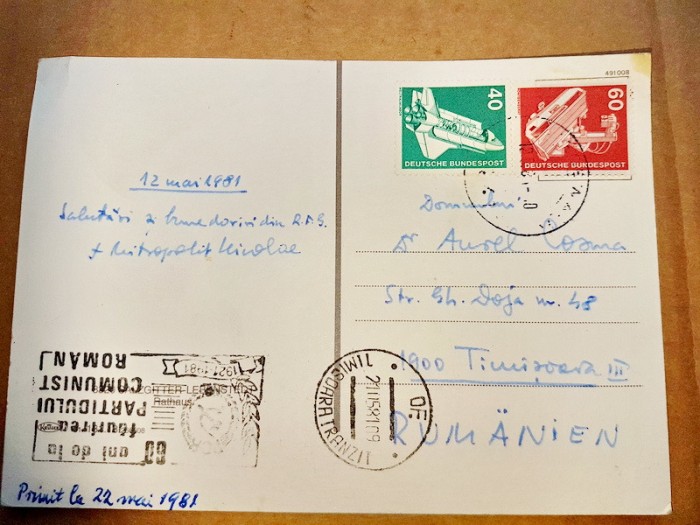 491 008
40
DEUTSCHE BUNDESPOST
60
DEUTSCHE BUNDESPOST
12 mai 1981
Salutări și bune doriri din R.F.G.
+ Mitropolit Nicolae
Domnului
Dr Aurel Cosma
Str. Gh. Doja nr. 48
1900 Timișoara III
RUMÄNIEN
1921-1981
60 ani de la
făurirea
PARTIDULUI
COMUNIST
ROMÂN
Rathaus
TIMIȘOARA TRANZIT
OF.
21.05.81.09
Primit la 22 mai 1981